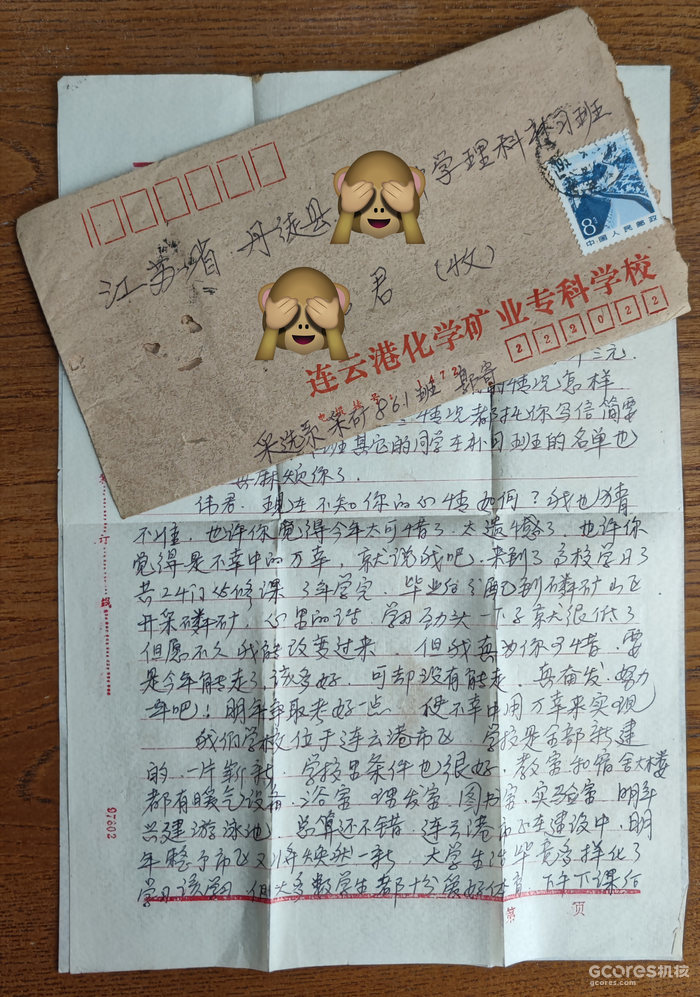 江苏省 丹徒县 学理科补习班
君 (收)
8分
中国人民邮政
连云港化学矿业专科学校
222022
采选系 采矿861班 郭寄
十三元
情况怎样
情况都托你写信简要
班其它的同学在补习班的名单也
麻烦你了
伟君. 现在不知你的心情如何? 我也猜
不准, 也许你觉得今年太可惜了 太遗憾了 也许你
觉得是不幸中的万幸, 就说我吧. 来到了高校学习了
共24门必修课 3年学完. 毕业后分配到磷矿山区
开采磷矿, 心里的话 学习劲头一下子就很低了
但愿不久我能改变过来. 但我真为你可惜. 要
是今年能走了该多好. 可却没有能走. 再奋发. 努力
一年吧! 明年争取考好一点. 使不幸中用万幸来实现
我们学校位于连云港市区 学校是全部新建
的 一片崭新. 学校里条件也很好. 教室和宿舍大楼
都有暖气设备. 浴室 理发室. 图书室. 实验室 明年
兴建游泳池 总算还不错. 连云港市区在建设中. 明
年整个市区又将焕然一新 大学生活毕竟多样化了
学习该学习 但大多数学生都十分爱好体育. 下午下课后
订
线
97602
第 页
GCORES机核
gcores.com